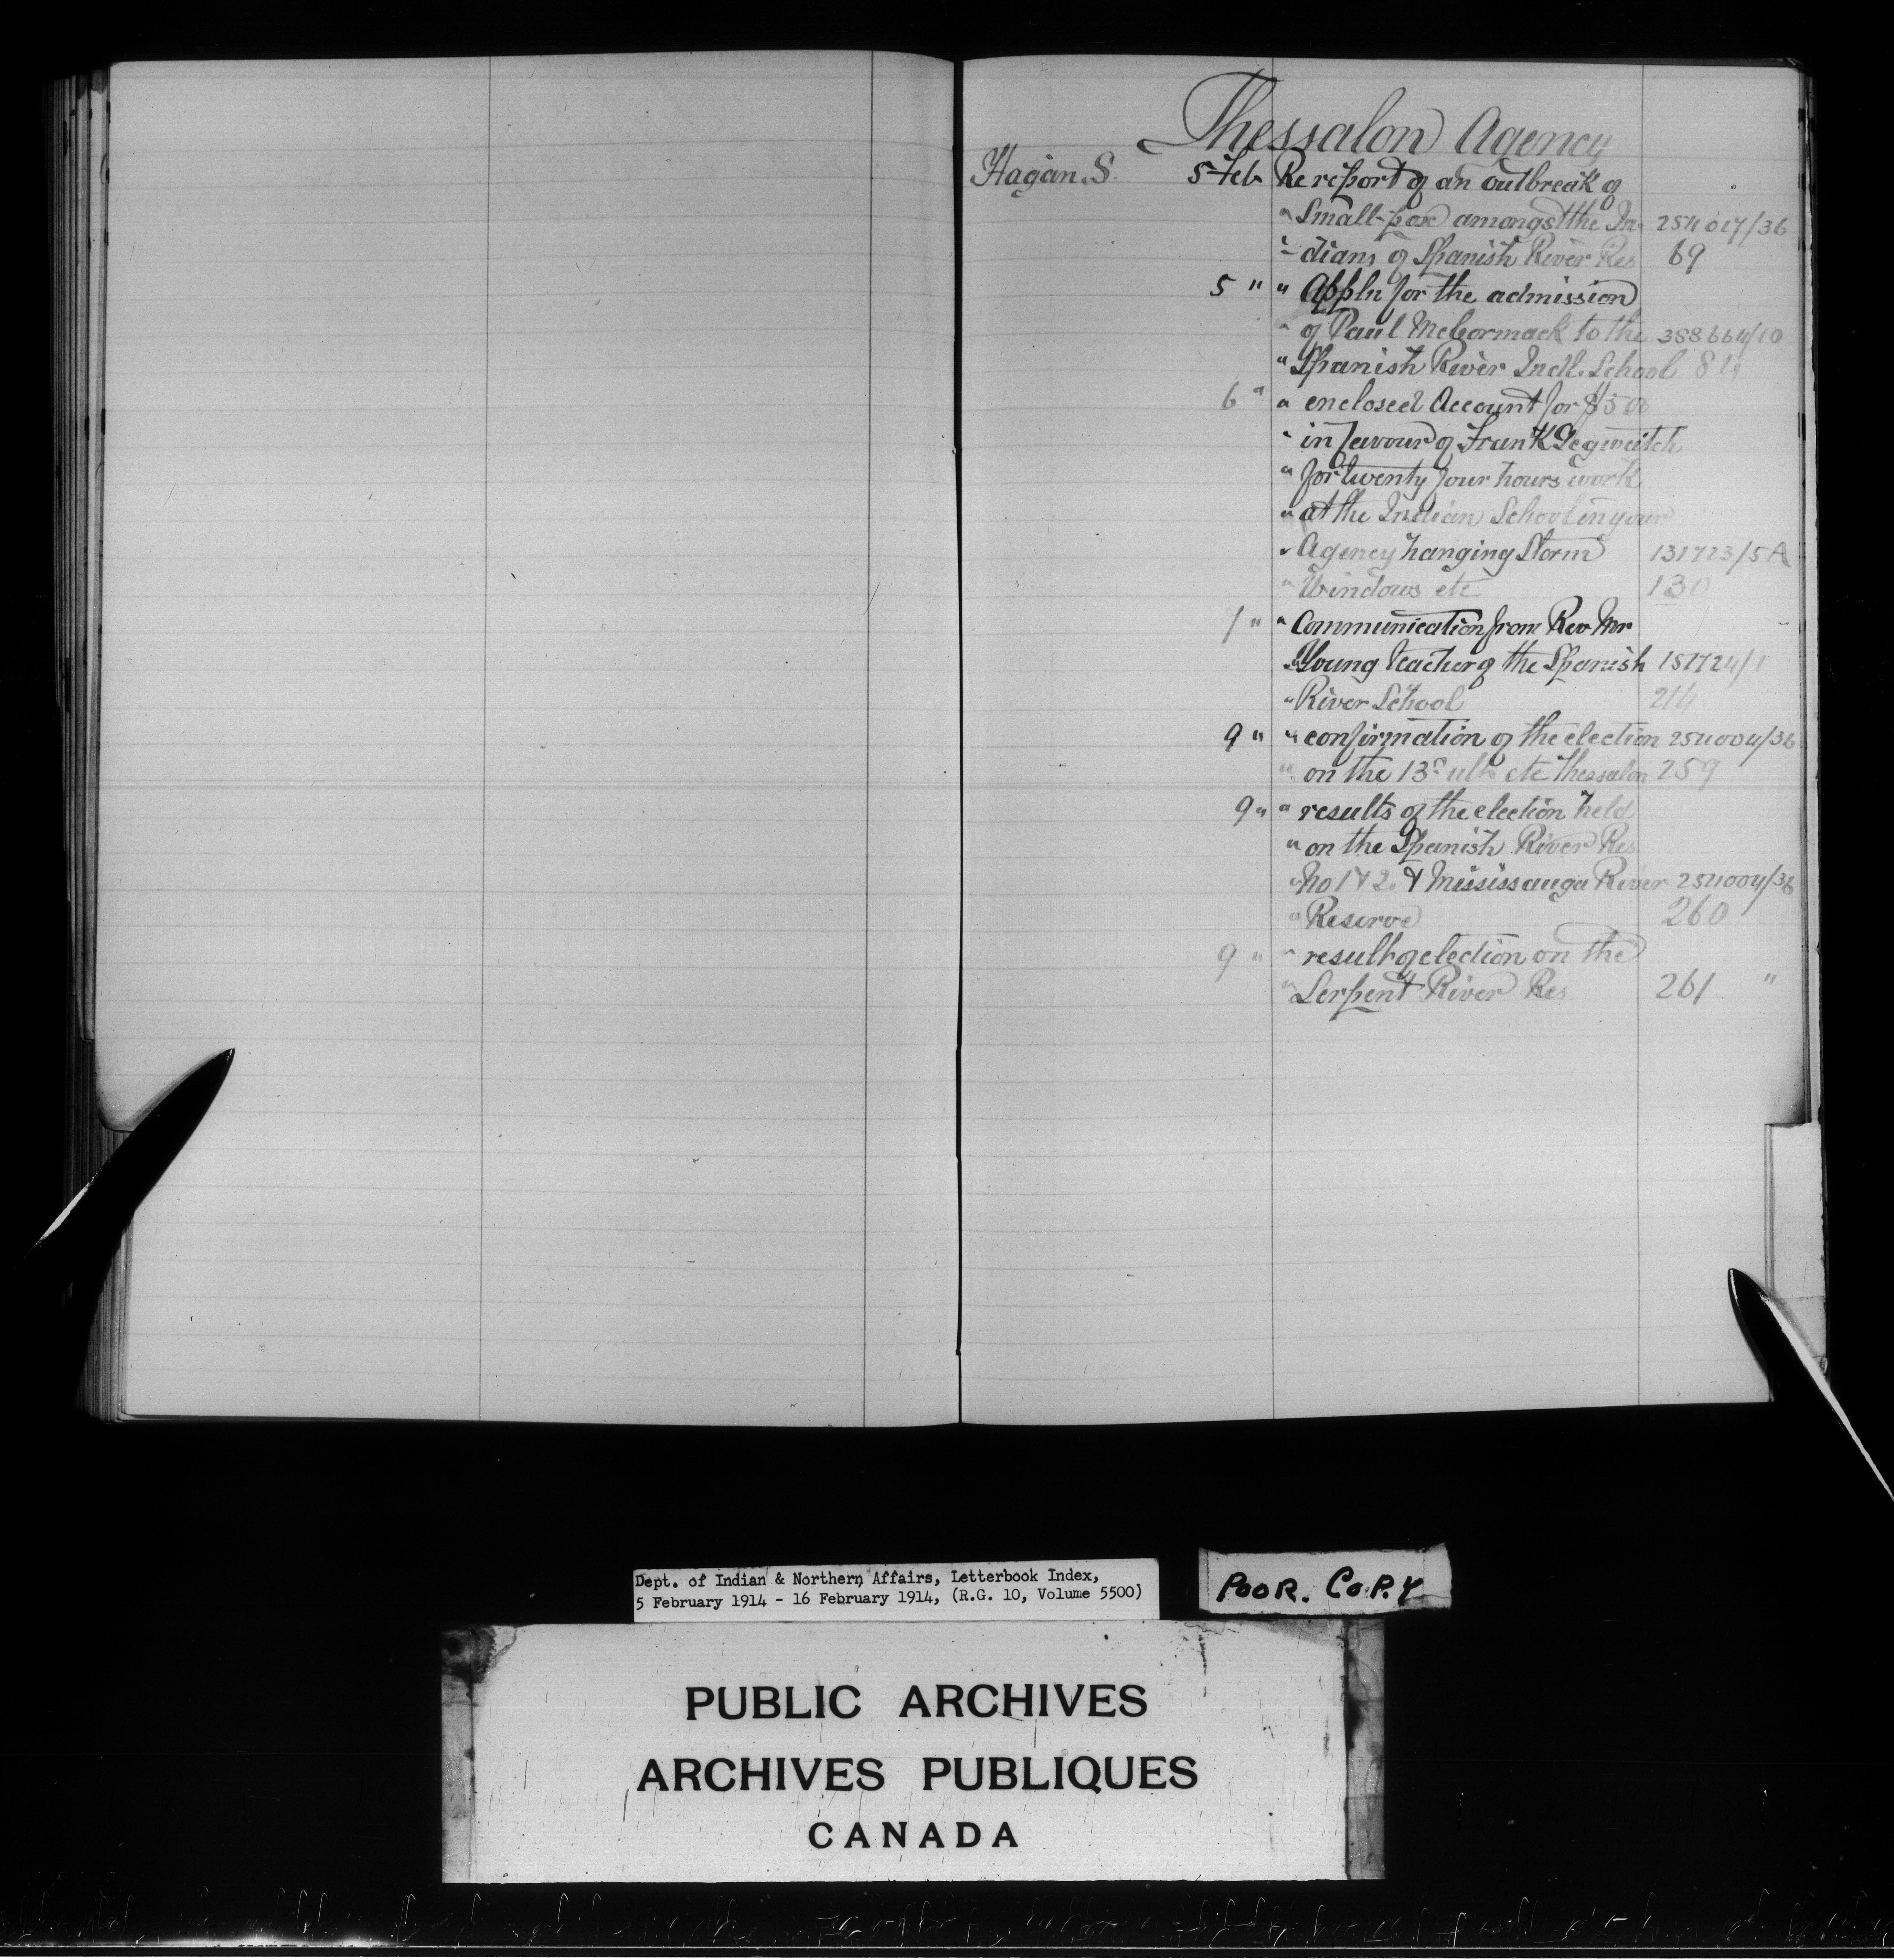 Thessalon Agency
Hagan. S. 5 Feb Re report of an outbreak of
" Small-pox amongst the In- 254017/36
" dians of Spanish River Res 69
5 " " Appln for the admission
" of Paul McCormack to the 358664/10
" Spanish River Indl. School 84
6 " " enclosed Account for $5
" in favour of Frank
" for twenty four hours work
" at the Indian School in your
" Agency hanging Storm 131723/5A
" Windows etc 130
7 " " Communication from Rev Mr
" Young teacher of the Spanish 151724/1
" River School 214
9 " " confirmation of the election 254004/36
" on the 13th ulto etc Thessalon 259
9 " " results of the election held
" on the Spanish River Res
" No 1 & 2. & Mississauga River 254004/36
" Reserve 260
9 " " result of election on the
" Serpent River Res 261 "
Dept. of Indian & Northern Affairs, Letterbook Index,
5 February 1914 - 16 February 1914, (R.G. 10, Volume 5500)
POOR. COPY
PUBLIC ARCHIVES
ARCHIVES PUBLIQUES
CANADA